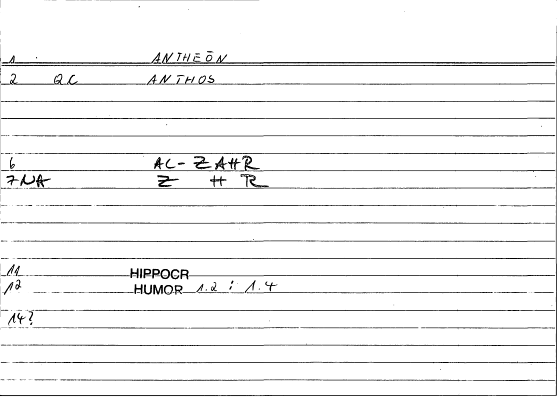 1 ANTHEŌN
2 QC ANTHOS
6 AC- ZAHR
7 NA Z H R
11 HIPPOCR
12 HUMOR 1.2 : 1.4
14?